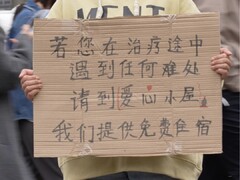 若您在治疗途中
遇到任何难处
请到爱心小屋
我们提供免费住宿